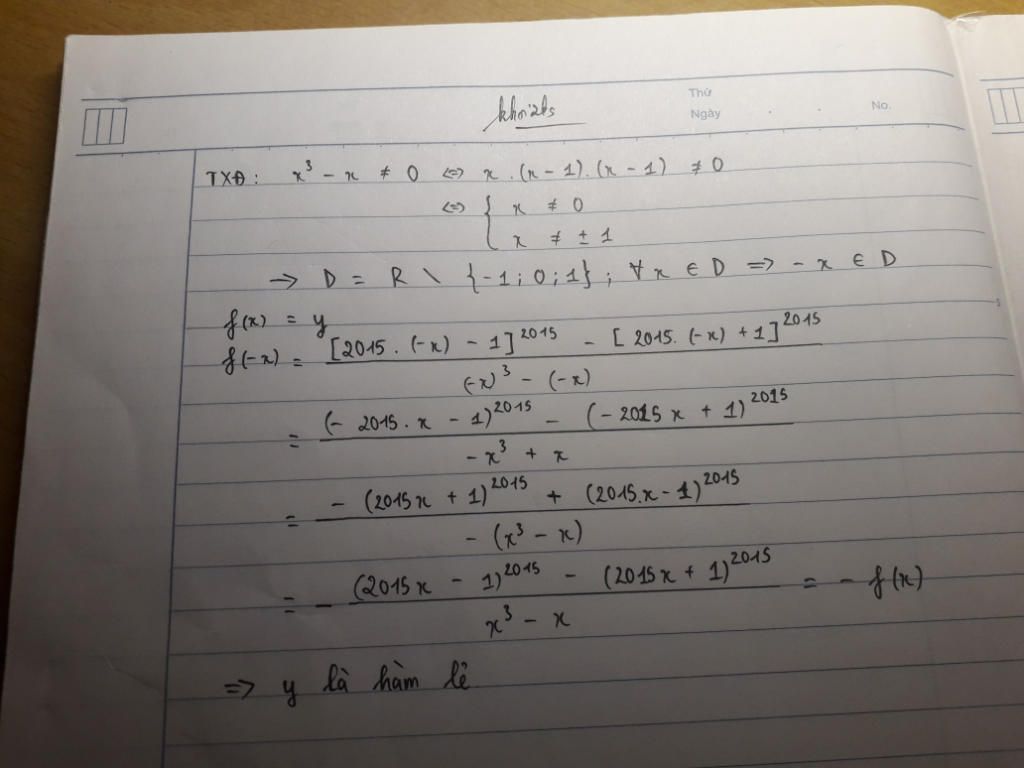 khoi2ks
Thứ
Ngày . . No.
TXĐ: x³ - x ≠ 0 <=> x . (x - 1) . (x - 1) ≠ 0
<=> { x ≠ 0
x ≠ ± 1
→ D = R \ {-1; 0; 1}; ∀x ∈ D => -x ∈ D
f(x) = y
f(-x) = ([2015. (-x) - 1]^2015 - [2015. (-x) + 1]^2015) / ((-x)³ - (-x))
= ((- 2015. x - 1)^2015 - (- 2015x + 1)^2015) / (-x³ + x)
= (- (2015x + 1)^2015 + (2015.x - 1)^2015) / (- (x³ - x))
= - ((2015x - 1)^2015 - (2015x + 1)^2015) / (x³ - x) = - f(x)
=> y là hàm lẻ